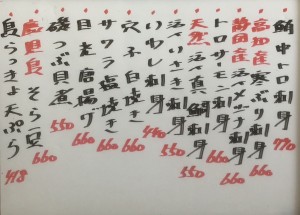 鮪中トロ刺身 770
高知産 寒ぶり刺身 660
静岡産 活〆メジナ刺身 660
天然 活〆真鯛刺身 550
活〆いさき刺身 550
いわし刺身 440
穴子白焼き 660
サワラ塩焼き 660
目光唐揚げ 660
磯つぶ貝煮 550
鹿児島 そら豆 660
島らっきょ天ぷら 418